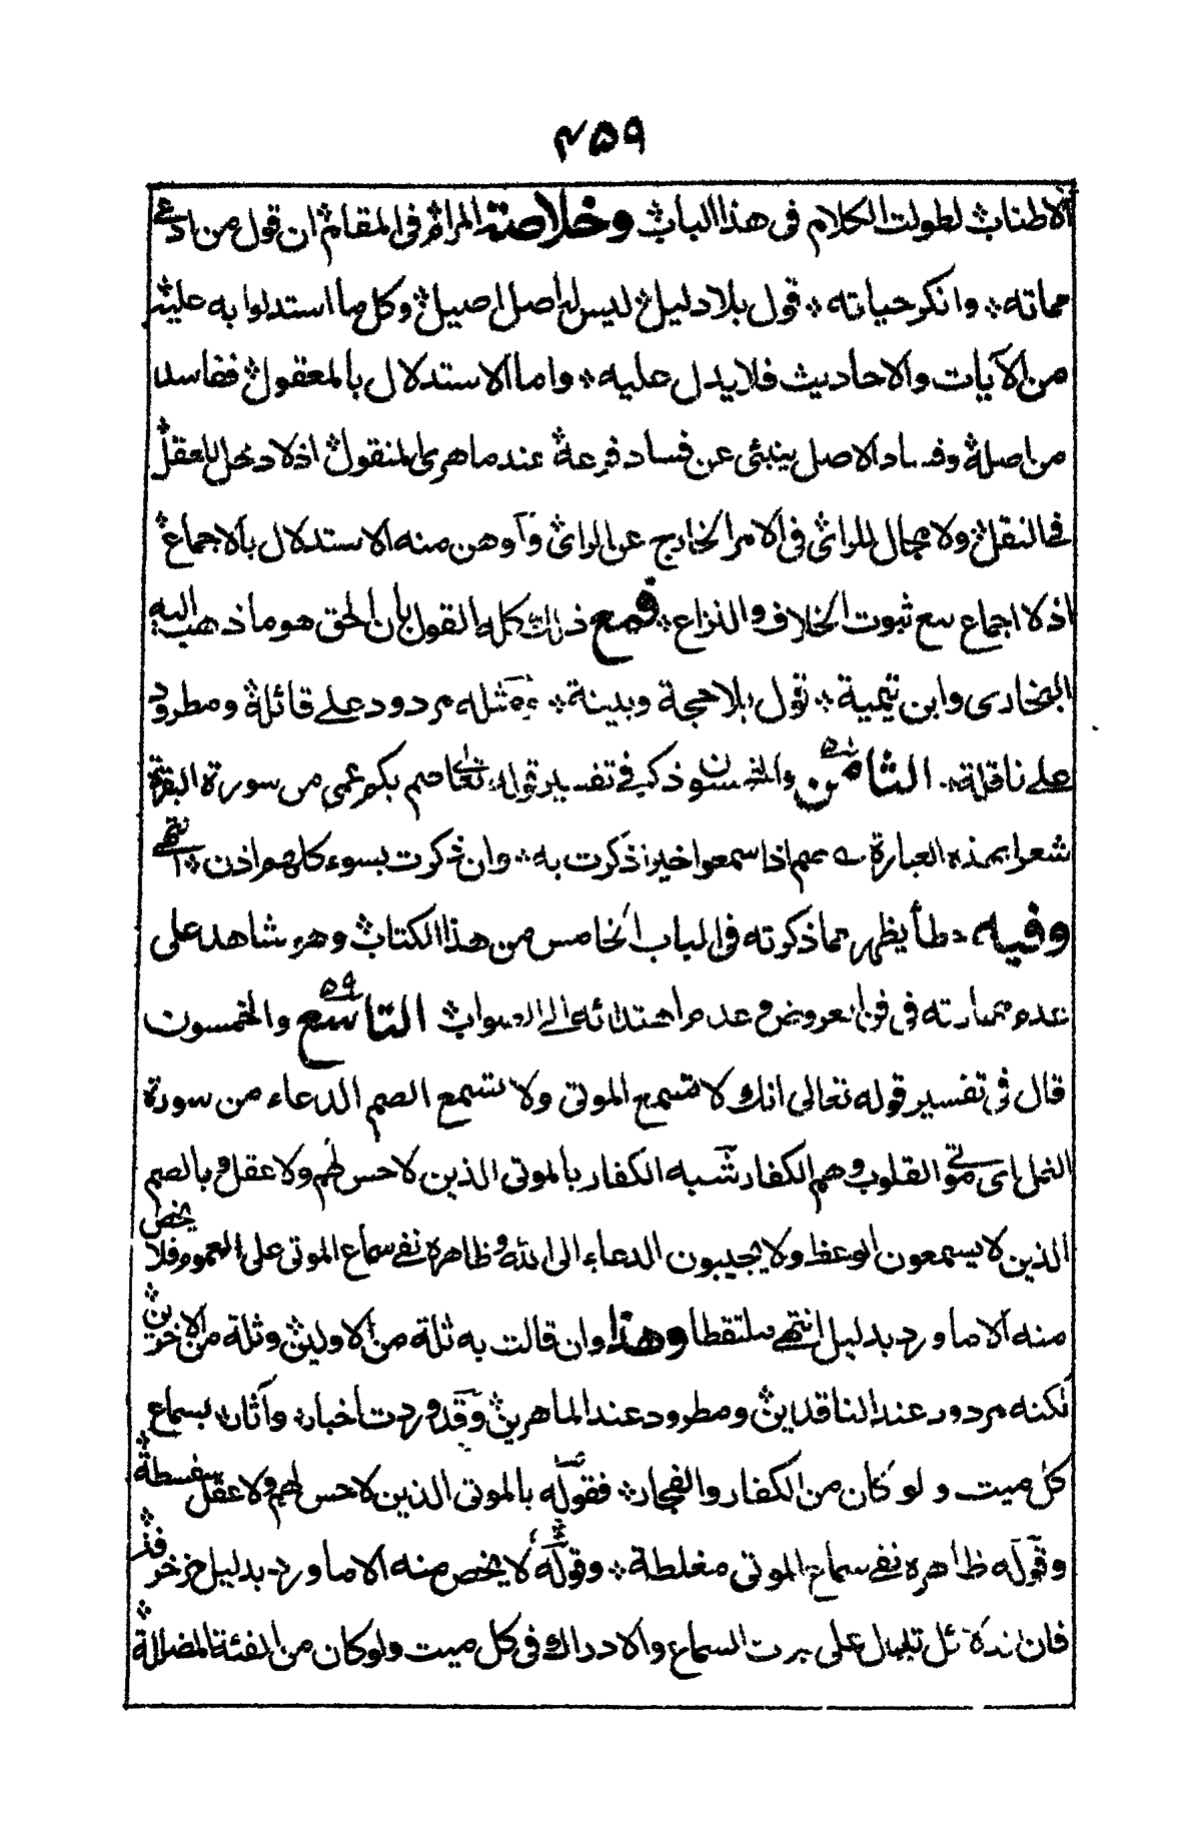 ۴۵۹
الاطناب لطولت الكلام فى هذا الباب وخلاصة المرام فى المقام ان قول من ادعى
مماته وانكر حياته قول بلا دليل ليس له اصل اصيل وكل ما استدلوا به عليه
من الآيات والاحاديث فلا يدل عليه واما الاستدلال بالمعقول ففاسد
من اصله وفساد الاصل ينبئ عن فساد فرعه عند ماهرى المنقول اذ لا دخل للعقل
فى النقل ولا مجال للراى فى الامر الخارج عن الراى وآوهن منه الاستدلال بالاجماع
اذ لا اجماع مع ثبوت الخلاف والنزاع فمع ذلك كله القول بان الحق هو ما ذهب اليه
البخارى وابن تيمية قول بلا حجة وبينة ومثله مردود على قائله ومطرود
على ناقله الثامن ۵۸ والخمسون ذكر فى تفسير قوله تعالى صم بكم عمى من سورة البقرة
شعرا بهذه العبارة ے صم اذا سمعوا خيرا ذكرت به وان ذكرت بسوء كلهم اذن انتهى
وفيه خطأ يظهر مما ذكرته فى الباب الخامس من هذا الكتاب وهو شاهد على
عدم مهارته فى فن العروض وعدم اهتدائه الى الصواب التاسع ۵۹ والخمسون
قال فى تفسير قوله تعالى انك لا تسمع الموتى ولا تسمع الصم الدعاء من سورة
النمل اى موتى القلوب وهم الكفار شبه الكفار بالموتى الذين لا حس لهم ولا عقل وبالصم
الذين لا يسمعون الوعظ ولا يجيبون الدعاء الى الله وظاهره نفى سماع الموتى على العموم فلا يخص
منه الا ما ورد بدليل انتهى ملتقطا وهذا وان قالت به ثلة من الاولين وثلة من الآخرين
لكنه مردود عند الناقدين ومطرود عند الماهرين وقد وردت اخبار وآثار بسماع
كل ميت ولو كان من الكفار والفجار فقوله بالموتى الذين لا حس لهم ولا عقل سفسطة
وقوله ظاهره نفى سماع الموتى مغلطة وقوله لا يخص منه الا ما ورد بدليل مزخرفة
فان تدل على السماع والادراك فى كل ميت ولو كان من الفئة الضالة